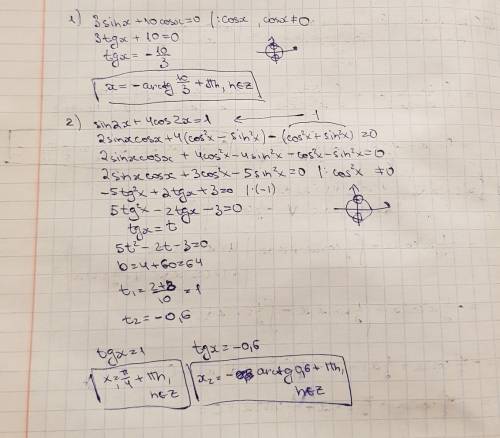 1) 3sinx + 10cosx = 0 (:cosx, cosx ≠ 0
3tgx + 10 = 0
tgx = -10/3
x = -arctg 10/3 + πn, n∈Z
2) sin2x + 4cos2x = 1
2sinxcosx + 4(cos²x - sin²x) - (cos²x + sin²x) = 0
2sinxcosx + 4cos²x - 4sin²x - cos²x - sin²x = 0
2sinxcosx + 3cos²x - 5sin²x = 0 | :cos²x ≠ 0
-5tg²x + 2tgx + 3 = 0 |·(-1)
5tg²x - 2tgx - 3 = 0
tgx = t
5t² - 2t - 3 = 0
D = 4 + 60 = 64
t₁ = (2+8)/10 = 1
t₂ = -0,6
tgx = 1 tgx = -0,6
x = π/4 + πn, n∈Z x₂ = - arctg 0,6 + πn, n∈Z